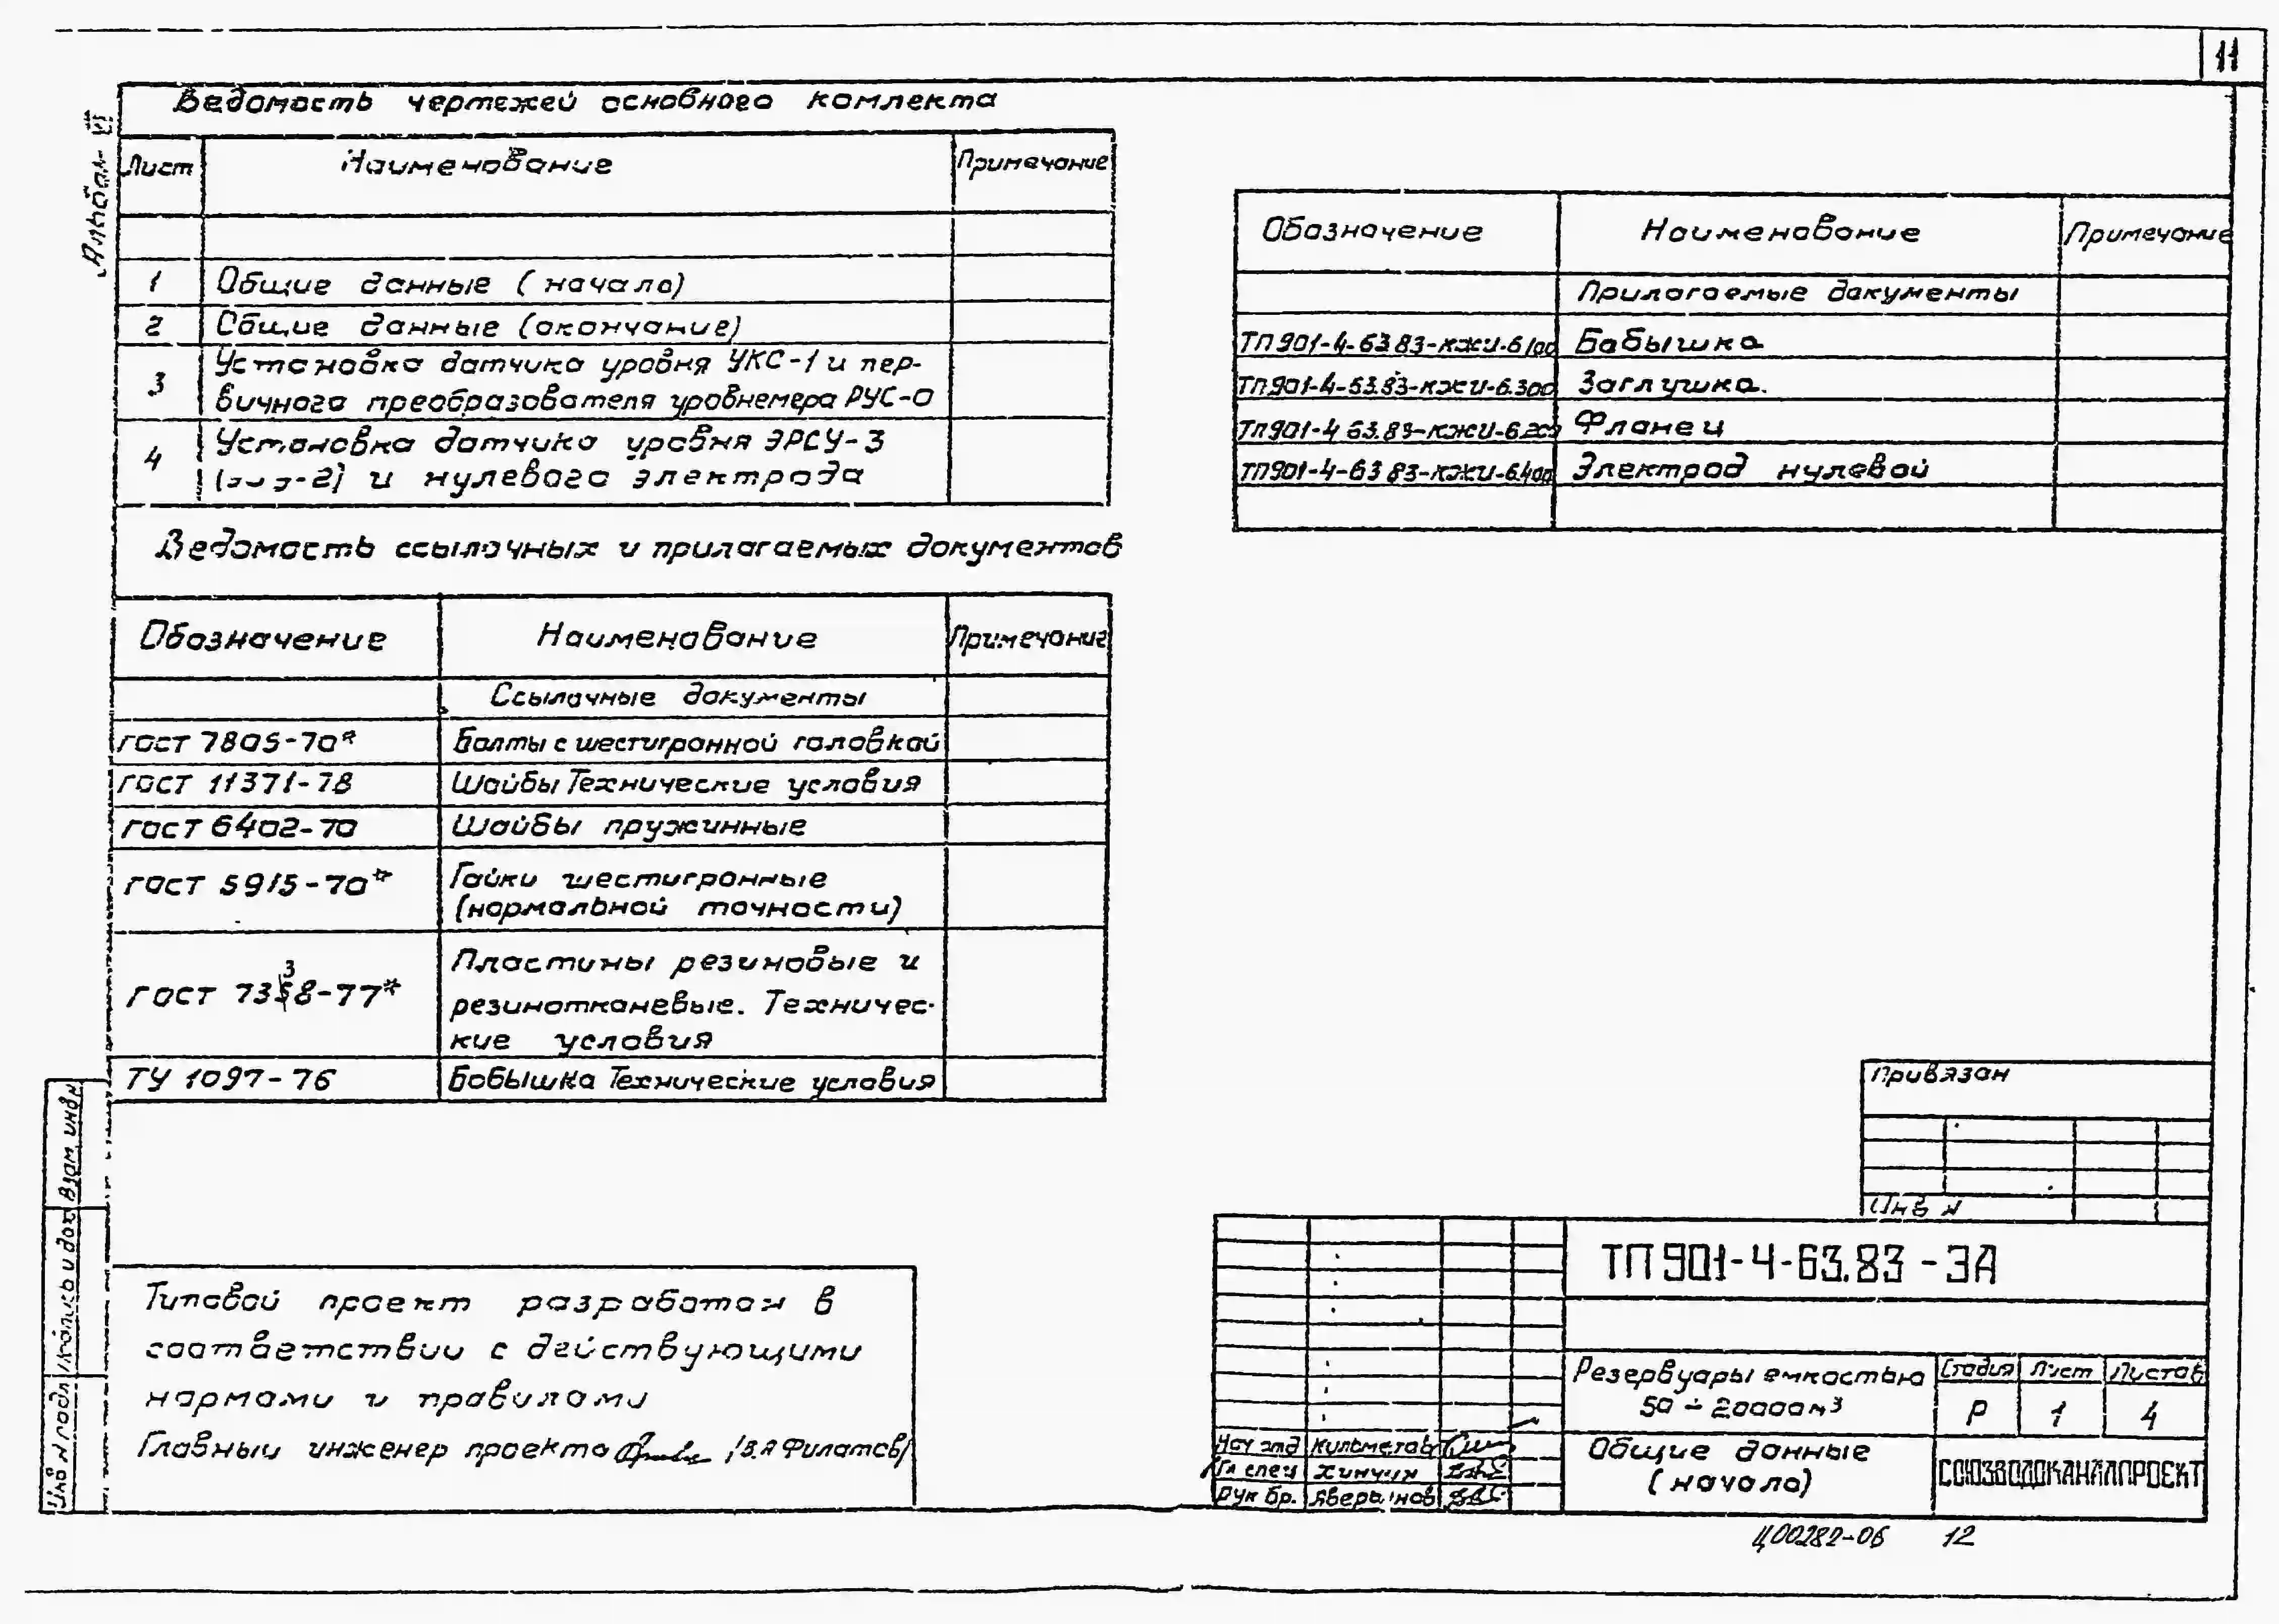 11
Альбом VI
Ведомость чертежей основного комлекта
Лист Наименование Примечание
1 Общие данные (начало)
2 Общие данные (окончание)
3 Установка датчика уровня УКС-1 и пер-
вичного преобразователя уровнемера РУС-0
4 Установка датчика уровня ЭРСУ-3
и нулевого электрода
Ведомость ссылочных и прилагаемых документов
Обозначение Наименование Примечание
Ссылочные документы
ГОСТ 7805-70* Болты с шестигранной головкой
ГОСТ 11371-78 Шайбы Технические условия
ГОСТ 6402-70 Шайбы пружинные
ГОСТ 5915-70* Гайки шестигранные
(нормальной точности)
ГОСТ 7338-77* Пластины резиновые и
резинотканевые. Техничес-
кие условия
ТУ 1097-76 Бобышка Технические условия
Обозначение Наименование Примечание
Прилагаемые документы
ТП901-4-63.83-КЖИ-6.100 Бабышка
ТП901-4-63.83-КЖИ-6.300 Заглушка.
ТП901-4-63.83-КЖИ-6.200 Фланец
ТП901-4-63.83-КЖИ-6.400 Электрод нулевой
Типовой проект разработан в
соответствии с действующими
нормами и правилами
Главный инженер проекта /В.Я Филатов/
Взам. инв N
Подпись и дата
Инв N подл
Привязан
Инв N
ТП 901-4-63.83-ЭА
Резервуары емкостью
50÷20000м³
Стадия Лист Листов
Р 1 4
Общие данные
(начало)
СОЮЗВОДОКАНАЛПРОЕКТ
Нач отд
Гл спец Хинчин
Рук бр.
Ц00282-06 12